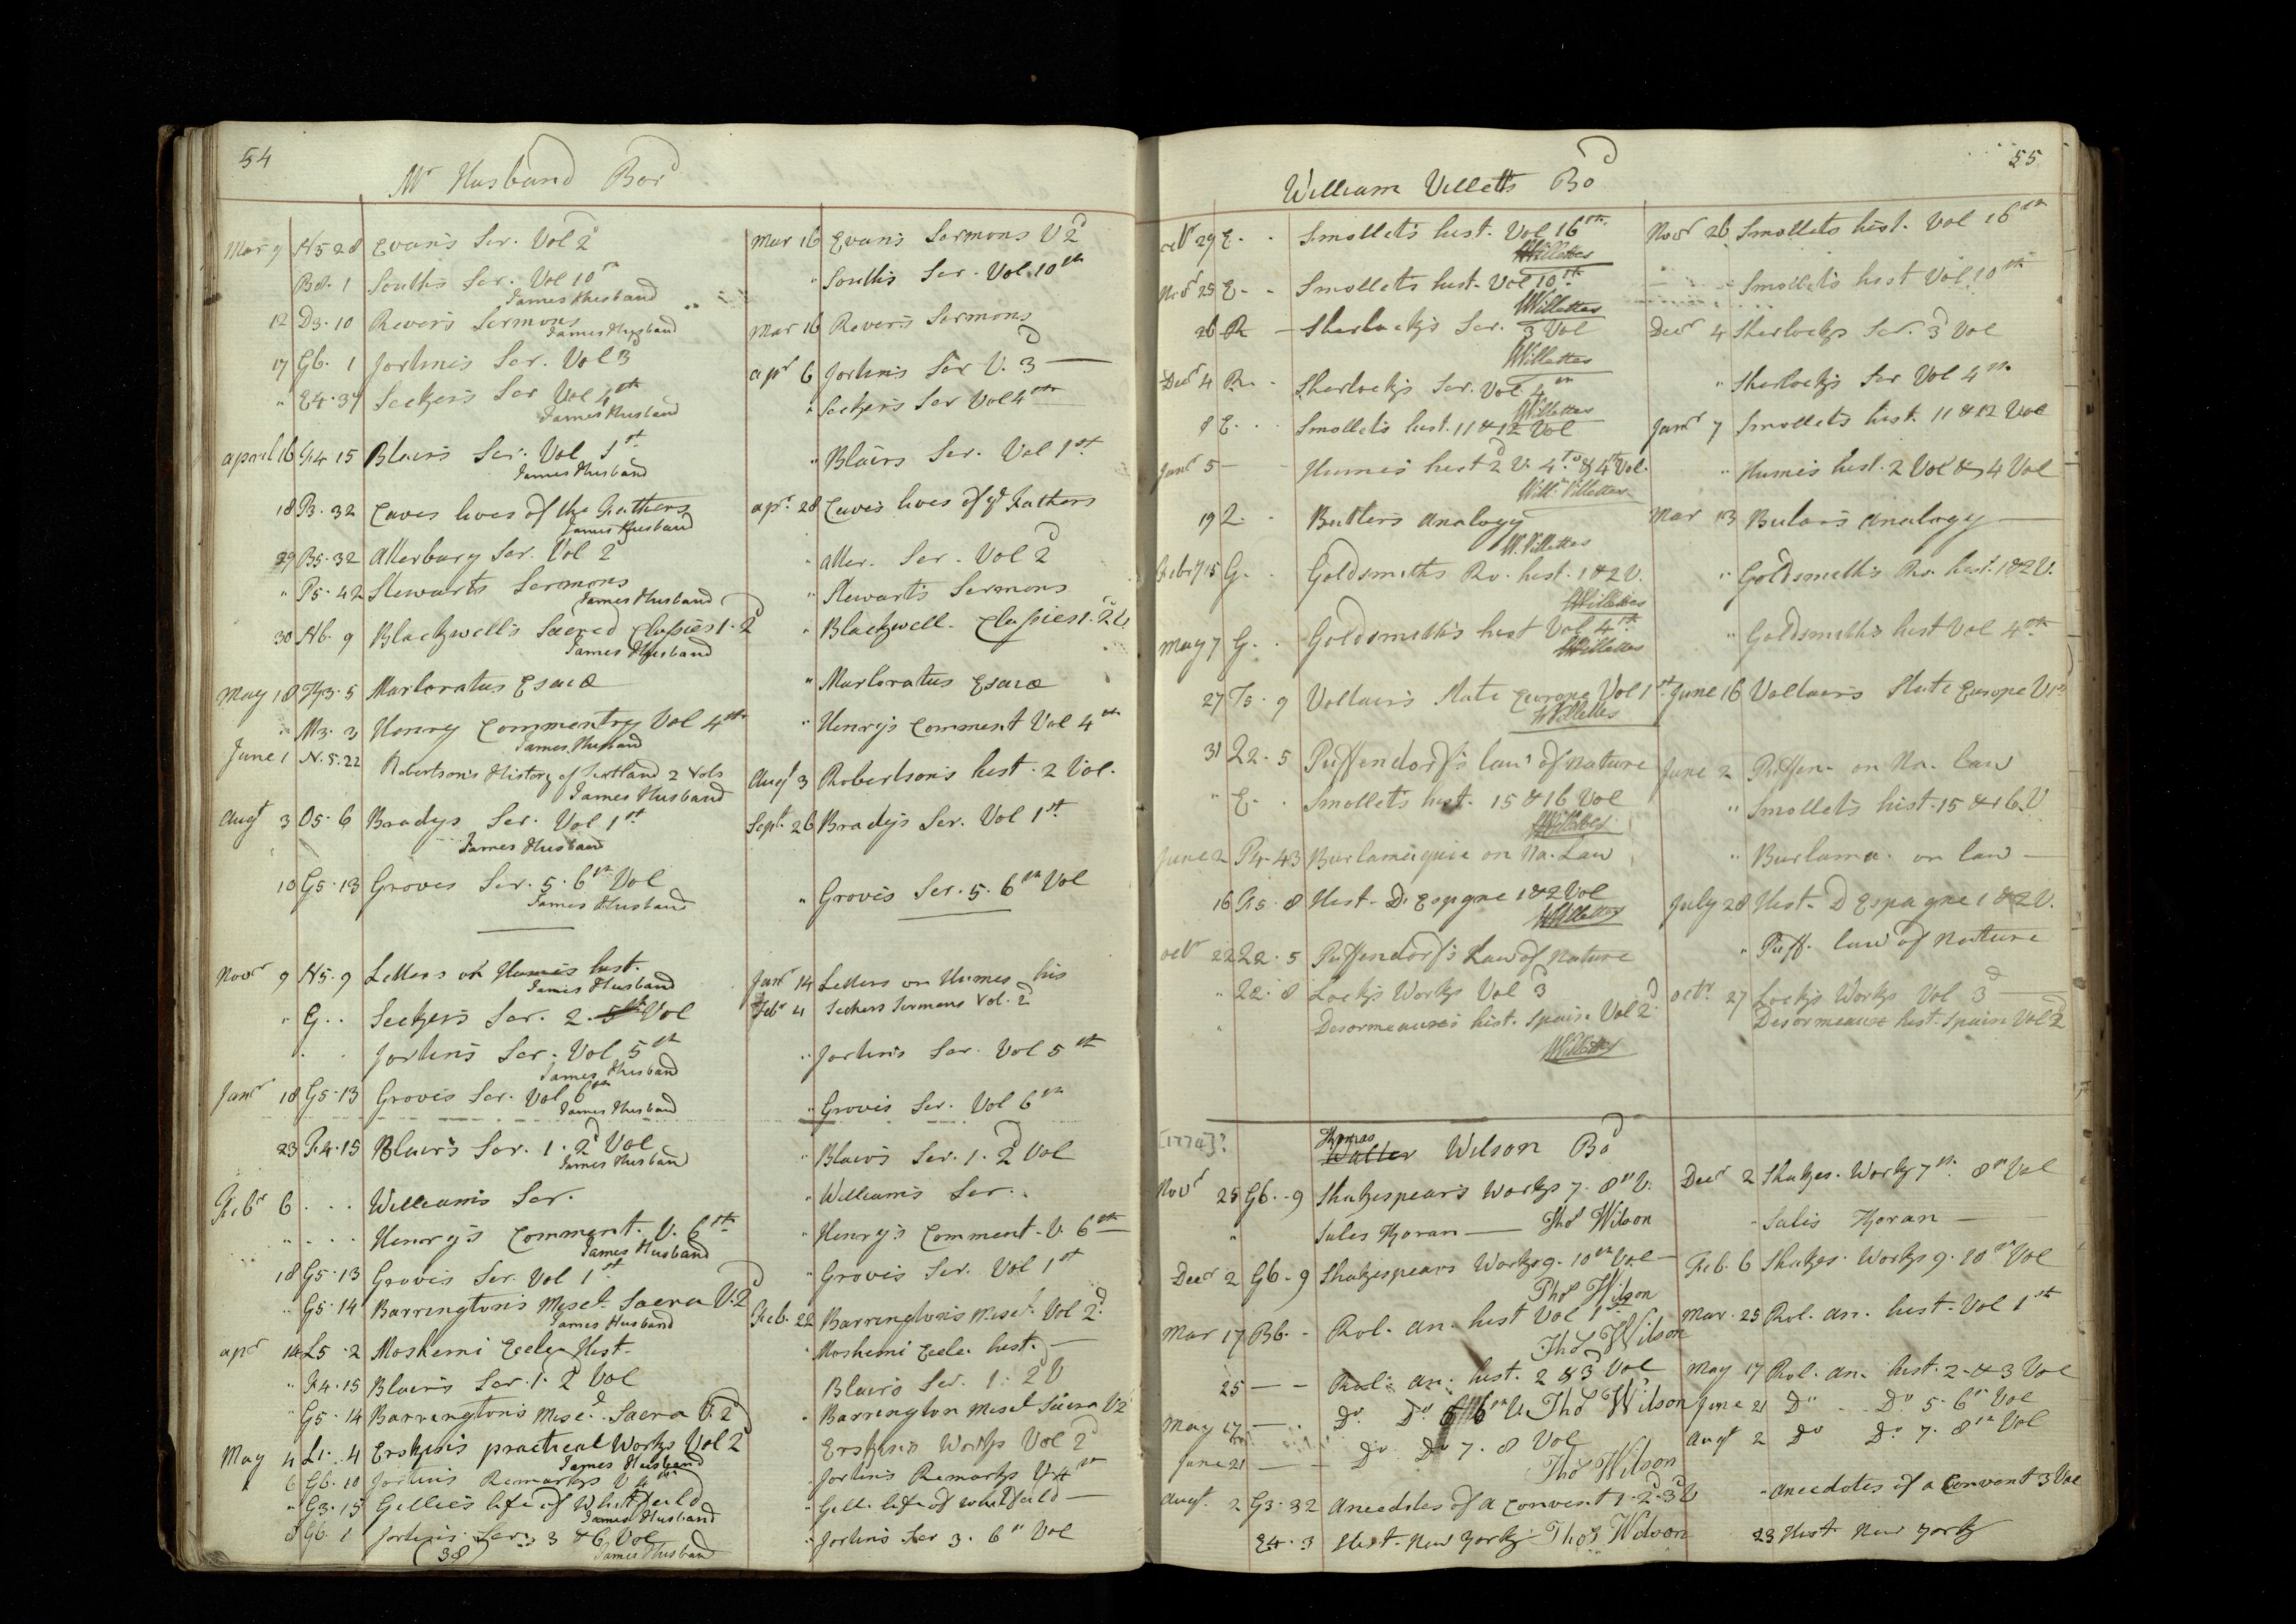 54
Mr Husband Bord
Mar 9 N5 28 Evans Ser. Vol 2d
B8. 1 Souths Ser. Vol 10th
James Husband
12 D3. 10 Rever's Sermons
James Husband
17 G6. 1 Jortins Ser. Vol 3d
" E4. 37 Seckers Ser Vol 4th
James Husband
april 16 F4 15 Blairs Ser. Vol 1st
James Husband
18 P3. 32 Caves lives of the Fathers
James Husband
29 B5. 32 Atterbury Ser. Vol 2d
" P5. 42 Stewarts Sermons
James Husband
30 N6. 9 Blackwell's Sacred Classics 1. 2d
James Husband
May 18 H3. 5 Marloratus Esaiæ
" M3. 3 Henry Commentry Vol 4th
James Husband
June 1 N. 5. 22 Robertson's History of Scotland 2 Vols
James Husband
Augt 3 O5. 6 Bradys Ser. Vol 1st
James Husband
10 G5. 13 Groves Ser. 5. 6th Vol
James Husband
Novr 9 N5. 9 Letters on Humes hist.
James Husband
" G. . Seckers Ser. 2. 5th Vol
. . Jortins Ser. Vol 5th
James Husband
Janr 18 G5. 13 Groves Ser. Vol 6th
James Husband
23 F4. 15 Blairs Ser. 1. 2d Vol
James Husband
Febr 6 . . . Williams Ser.
" . . . Henrys Comment. V. 6th
James Husband
18 G5. 13 Groves Ser. Vol 1st
" G5. 14 Barrington's Miscl. Sacra V. 2d
James Husband
apr 14 L5. 2 Moshemi Eccle. Hist.
" F4. 15 Blairs Ser. 1. 2d Vol
" G5. 14 Barrington's Miscl. Sacra V. 2d
May 4 L1. 4 Erskin's practical Works Vol 2d
James Husband
6 G6. 10 Jortins Remarks V 4th
" G3. 15 Gillies life of Whitfeild
James Husband
8 G6. 1 Jortins Ser. 3 & 6 Vol
(38) James Husband
Mar 16 Evans Sermons V 2d
" Souths Ser. Vol. 10th
Mar 16 Rever's Sermons
apr 6 Jortins Ser V. 3d
" Seckers Ser Vol 4th
" Blairs Ser. Vol 1st
apr. 28 Caves lives of ye Fathers
" Atter. Ser. Vol 2d
" Stewarts Sermons
" Blackwell. Classics 1. 2d
" Marloratus Esaiæ
" Henrys Comment Vol 4th
Augt 3 Robertson's hist. 2 Vol.
Sept. 26 Bradys Ser. Vol 1st
" Groves Ser. 5. 6th Vol
Janr 14 Letters on Humes his
Febr 4 Seckers Sermons Vol. 2d
" Jortins Ser. Vol 5th
" Groves Ser. Vol 6th
" Blairs Ser. 1. 2d Vol
" Williams Ser.
" Henrys Comment. V. 6th
" Groves Ser. Vol 1st
Feb. 22 Barrington's Miscl. Vol 2d
" Moshemi Eccle. hist.
Blairs Ser. 1. 2d V
" Barrington Miscl Sacra V 2d
Erskin's Works Vol 2d
" Jortins Remarks V. 4th
" Gill. life of whitfeild
" Jortins Ser 3. 6th Vol
55
William Villetts Bod
octr 29 E. . Smollets hist. Vol 16th
WVillettes
Novr 25 E. . Smollets hist. Vol 10th
WVillettes
26 R Sherlocks Ser. 3d Vol
WVillettes
Decr 4 R. . Sherlocks Ser. Vol 4th
WVillettes
8 E. . . Smollets hist. 11 & 12 Vol
Janr 5 Humes hist 2d V. 4to & 4th Vol.
Willm Villettes
19 2. . Butlers Analogy
W. Villettes
Febry 15 G. . Goldsmiths Ro. hist. 1 & 2 V.
WVillettes
May 7 G. . Goldsmiths hist Vol 4th
WVillettes
27 T5. 9 Voltairs State Europe Vol 1st
WVillettes
31 22. 5 Puffendorfs law of nature
" E. . Smollets hist. 15 & 16 Vol
WVillettes
June 2 P4. 43 Burlamaquie on Na. Law
16 G5. 8 Hist. D'Espagne 1 & 2 Vol
WVillettes
octr 22 22. 5 Puffendorfs Law of Nature
" 22. 8 Locks Works Vol 3d
" Desormeaux's hist. Spain Vol 2d
WVillettes
Novr 26 Smollets hist. Vol 16th
Smollets hist Vol 10th
Decr 4 Sherlocks Ser. 3d Vol
" Sherlocks Ser Vol 4th
Janr 7 Smollets hist. 11 & 12 Vol
" Humes hist. 2 Vol & 4 Vol
Mar 13 Butlars Analogy
" Goldsmith's Ro. hist. 1 & 2 V.
" Goldsmiths hist Vol 4th
June 16 Voltairs State Europe V 1st
June 2 Puffen. on Na. law
" Smollets hist. 15 & 16. V
" Burlama. on law
July 28 Hist. D Espagne 1 & 2 V.
" Puff. law of Nature
octr. 27 Locks Works Vol 3d
Desormeaux hist. Spain Vol 2d
[1774]?
Thomas
Walter Wilson Bod
Novr 25 G6. 9 Shakespears Works 7. 8th V.
" Sales Koran Thos Wilson
Decr 2 G6. 9 Shakespears Works 9. 10th Vol
Thos Wilson
Mar 17 B6. . Rol. an. hist Vol 1st
Thos Wilson
25 Rol. an. hist. 2 & 3d Vol
May 17 Do Do 5 6th V. Thos Wilson
June 21 Do Do 7. 8 Vol
Thos Wilson
Augt. 2 G3. 32 Anecdotes of a Convent 1. 2d. 3d V
E4. 3 Hist. New York Thos Wilson
Decr 2 Shakes. Works 7th. 8th Vol
" Sales Koran
Feb. 6 Shakes. Works 9. 10th Vol
Mar. 25 Rol. an. hist. Vol 1st
May 17 Rol. an. hist. 2. & 3 Vol
June 21 Do . . Do 5. 6th Vol
Augt 2 Do Do 7. 8th Vol
" Anecdotes of a Convent 3 Vol
23 Hist New York